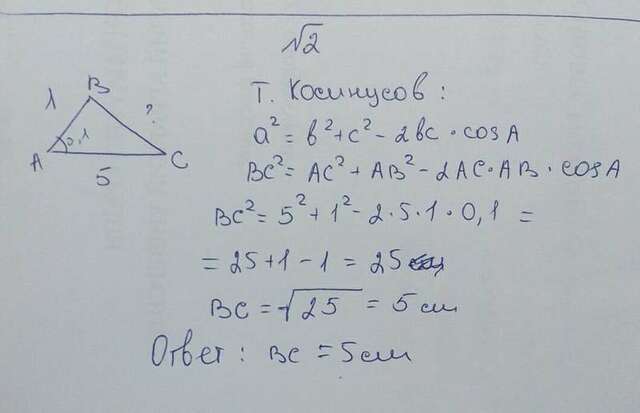 √2
1
B
?
A
0,1
C
5
Т. Косинусов:
a² = b² + c² - 2bc · cosA
BC² = AC² + AB² - 2AC · AB · cosA
BC² = 5² + 1² - 2 · 5 · 1 · 0,1 =
= 25 + 1 - 1 = 25
BC = √25 = 5 см
Ответ: BC = 5 см